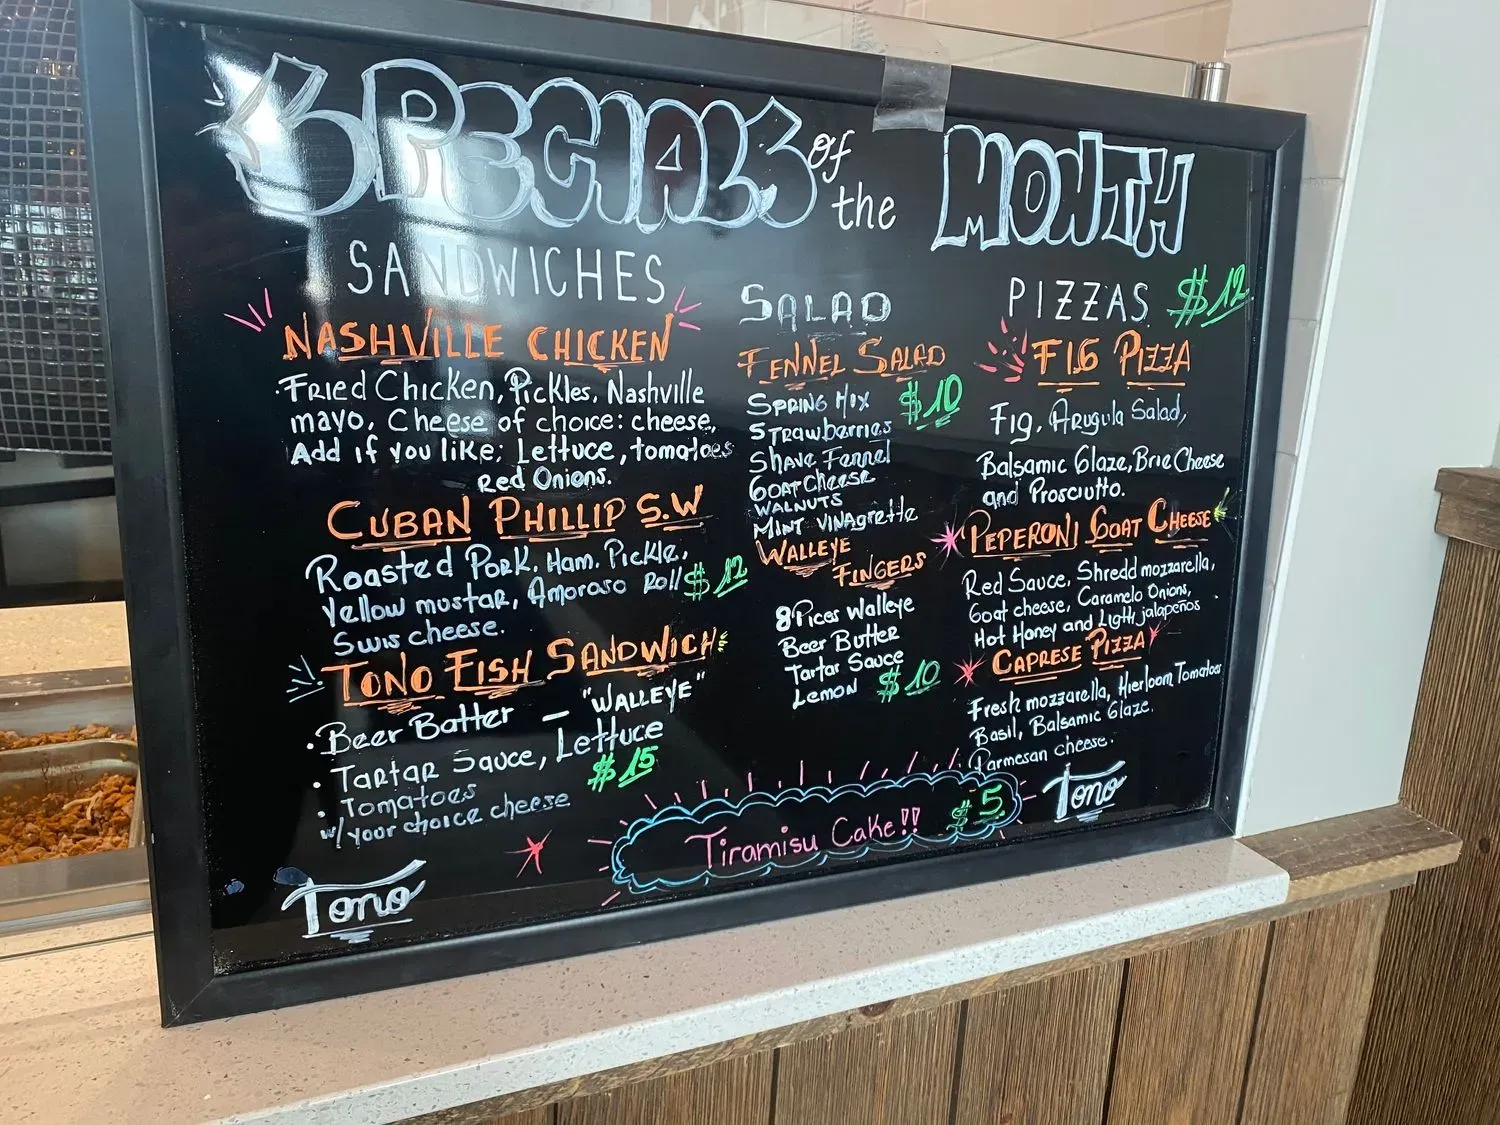 SPECIALS of the MONTH
SANDWICHES
NASHVILLE CHICKEN
Fried Chicken, Pickles, Nashville
mayo, Cheese of choice: cheese,
Add if you like; Lettuce, tomatoes
Red Onions.
CUBAN PHILLIP S.W
Roasted Pork. Ham. Pickle,
Yellow mustar, Amoroso Roll $12
Swis cheese.
TONO FISH SANDWICH
• Beer Batter — "WALLEYE"
• Tartar Sauce, Lettuce
• Tomatoes $15
w/ your choice cheese
Tono
SALAD
FENNEL SALAD
Spring Mix $10
Strawberries
Shave Fennel
Goat Cheese
Walnuts
Mint Vinagrette
WALLEYE
FINGERS
8 Pices Walleye
Beer Butter
Tartar Sauce
Lemon $10
PIZZAS $12
FIG PIZZA
Fig, Arugula Salad,
Balsamic Glaze, Brie Cheese
and Prosciutto.
PEPERONI GOAT CHEESE
Red Sauce, Shredd mozzarella,
Goat cheese, Caramelo Onions,
Hot Honey and Ligth jalapeños
CAPRESE PIZZA
Fresh mozzarella, Hierloom Tomatoes
Basil, Balsamic Glaze.
Parmesan cheese.
Tono
Tiramisu Cake!! $5